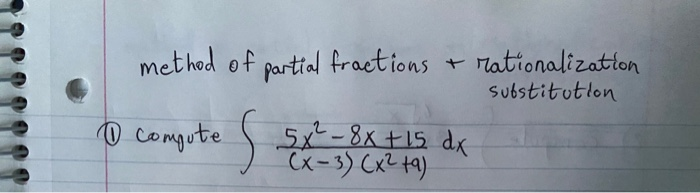 method of partial fractions + rationalization
substitution
① compute ∫ 5x²-8x+15 dx
(x-3)(x²+9)